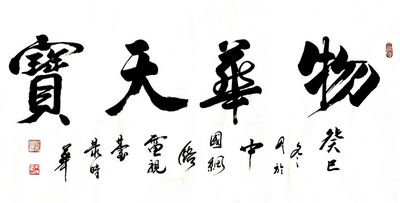 物華天寶
癸巳冬月於中國網絡電視臺時華